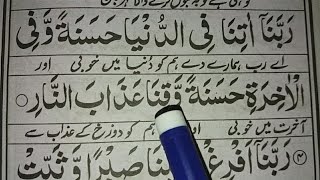 رَبَّنَآ اٰتِنَا فِی الدُّنْیَا حَسَنَةً وَّفِی
اے رب ہمارے دے ہم کو دنیا میں خوبی اور
الْاٰخِرَةِ حَسَنَةً وَّقِنَا عَذَابَ النَّارِ ○
آخرت میں خوبی اور ہم کو دوزخ کے عذاب سے
رَبَّنَآ اَفْرِغْ عَلَیْنَا صَبْرًا وَّثَبِّتْ